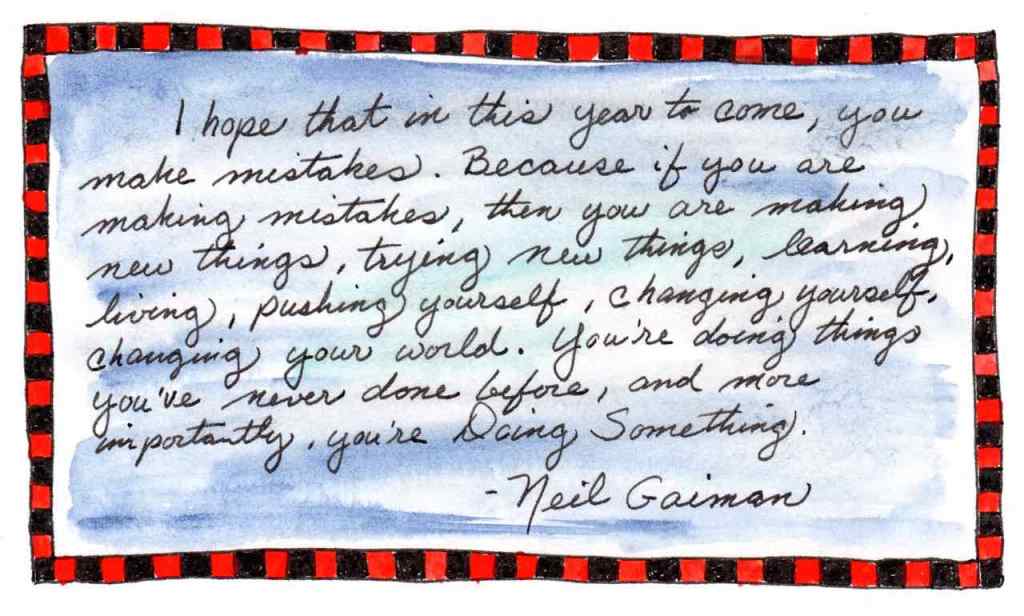 I hope that in this year to come, you
make mistakes. Because if you are
making mistakes, then you are making
new things, trying new things, learning,
living, pushing yourself, changing yourself,
changing your world. You're doing things
you've never done before, and more
importantly, you're Doing Something.
- Neil Gaiman